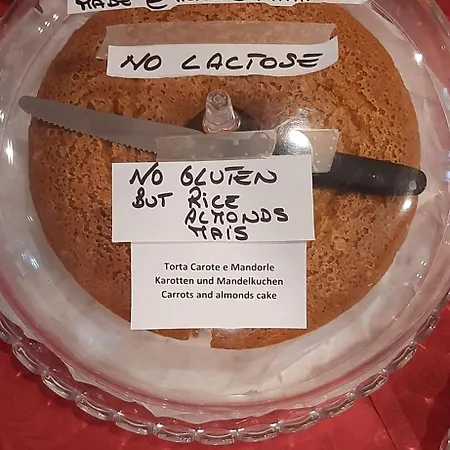 MADE
NO LACTOSE
NO GLUTEN
BUT RICE
ALMONDS
MAIS
Torta Carote e Mandorle
Karotten und Mandelkuchen
Carrots and almonds cake